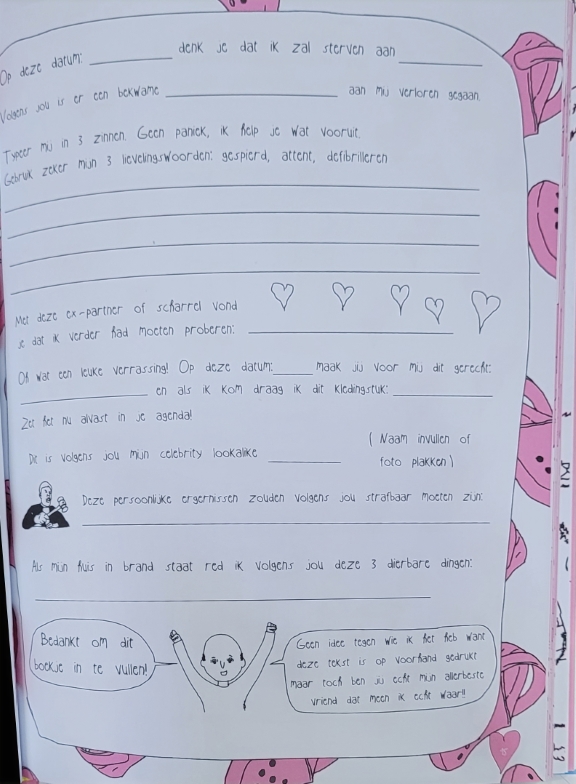 Op deze datum: __________ denk je dat ik zal sterven aan __________
Volgens jou is er een bekwame ____________________ aan mij verloren gegaan.
Typeer mij in 3 zinnen. Geen paniek, ik help je wat vooruit.
Gebruik zeker mijn 3 lievelingswoorden: gespierd, attent, defibrilleren
Met deze ex-partner of scharrel vond
je dat ik verder had moeten proberen: ____________________
Oh wat een leuke verrassing! Op deze datum:_____ maak jij voor mij dit gerecht:
_______________ en als ik kom draag ik dit kledingstuk: ____________
Zet het nu alvast in je agenda!
Dit is volgens jou mijn celebrity lookalike __________ (Naam invullen of
foto plakken)
Deze persoonlijke ergernissen zouden volgens jou strafbaar moeten zijn:
Als mijn huis in brand staat red ik volgens jou deze 3 dierbare dingen:
Bedankt om dit
boekje in te vullen!
Geen idee tegen wie ik het heb want
deze tekst is op voorhand gedrukt
maar toch ben jij echt mijn allerbeste
vriend dat meen ik echt waar!!